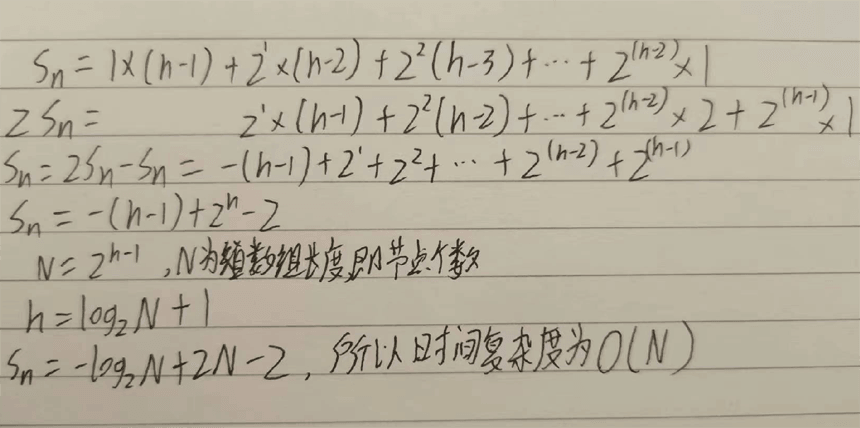 Sn = 1×(h-1) + 2¹×(h-2) + 2²(h-3) + ⋯ + 2^(h-2)×1
2Sn = 2¹×(h-1) + 2²(h-2) + ⋯ + 2^(h-2)×2 + 2^(h-1)×1
Sn = 2Sn-Sn = -(h-1) + 2¹ + 2² + ⋯ + 2^(h-2) + 2^(h-1)
Sn = -(h-1) + 2^h - 2
N = 2^h-1 , N为数组长度,即节点个数
h = log₂N + 1
Sn = -log₂N + 2N - 2 , 所以时间复杂度为O(N)